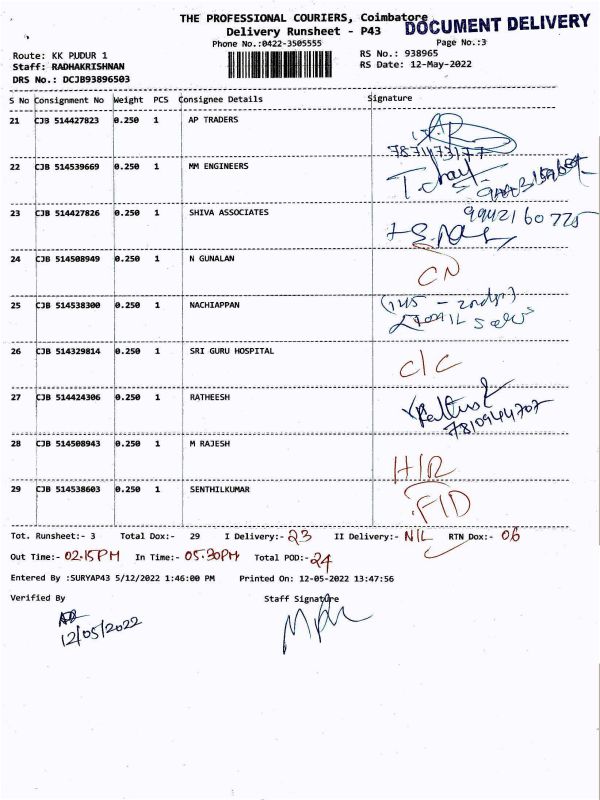 THE PROFESSIONAL COURIERS, Coimbatore
DOCUMENT DELIVERY
Delivery Runsheet - P43
Phone No.:0422-3505555
Page No.:3
Route: KK PUDUR 1
RS No.: 938965
Staff: RADHAKRISHNAN
RS Date: 12-May-2022
DRS No.: DCJB93896503
S No Consignment No Weight PCS Consignee Details Signature
21 CJB 514427823 0.250 1 AP TRADERS
22 CJB 514539669 0.250 1 MM ENGINEERS
23 CJB 514427826 0.250 1 SHIVA ASSOCIATES 9942160725
24 CJB 514508949 0.250 1 N GUNALAN CN
25 CJB 514538300 0.250 1 NACHIAPPAN
26 CJB 514329814 0.250 1 SRI GURU HOSPITAL C/C
27 CJB 514424306 0.250 1 RATHEESH 7810944707
28 CJB 514508943 0.250 1 M RAJESH H/R
29 CJB 514538603 0.250 1 SENTHILKUMAR FID
Tot. Runsheet:- 3 Total Dox:- 29 I Delivery:- 23 II Delivery:- NIL RTN Dox:- 06
Out Time:- 02.15PM In Time:- 05.30PM Total POD:- 24
Entered By :SURYAP43 5/12/2022 1:46:00 PM Printed On: 12-05-2022 13:47:56
Verified By Staff Signature
12/05/2022